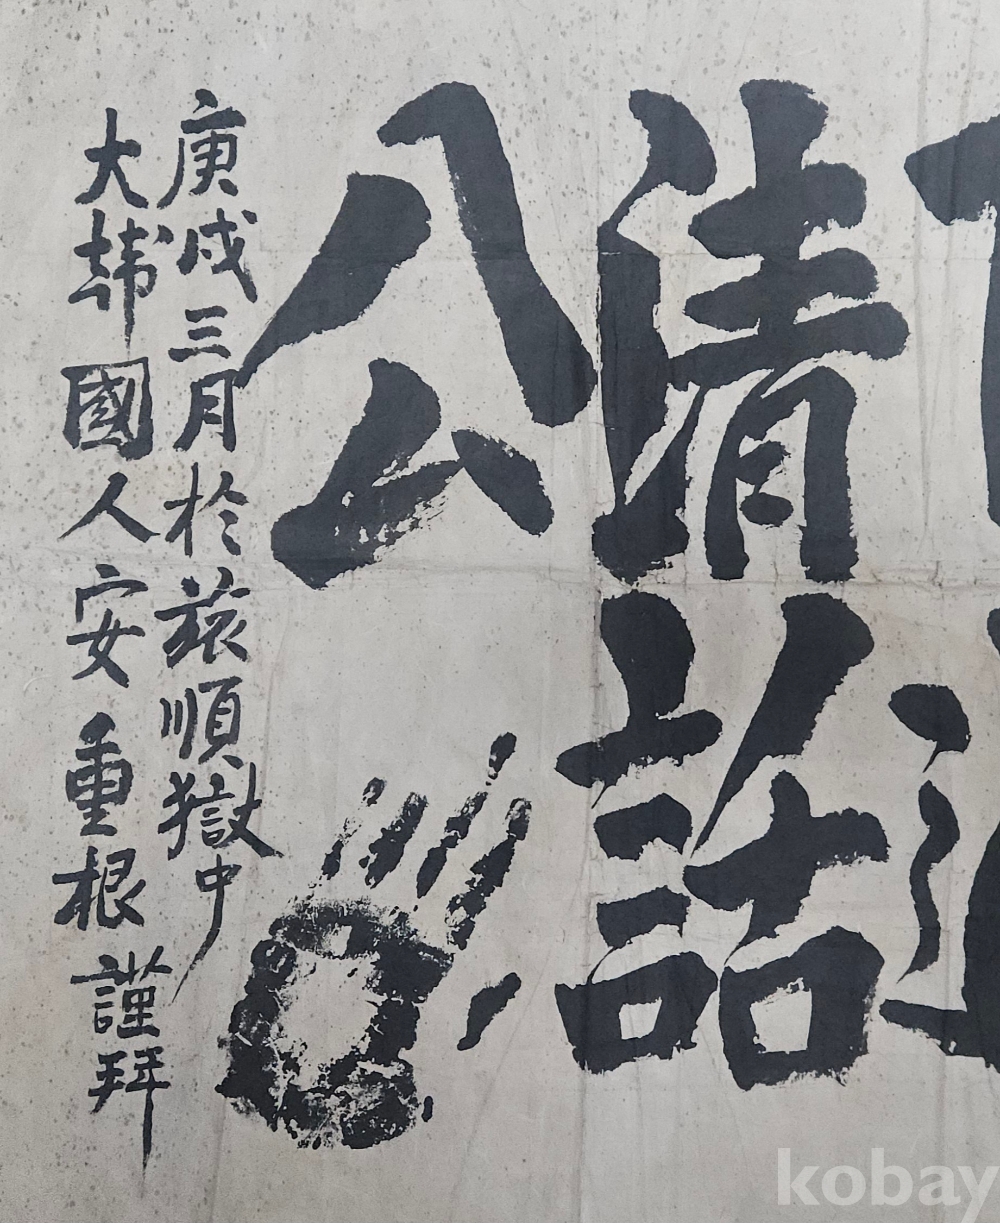 清話
公
庚戌三月於旅順獄中
大韓國人安重根 謹拜
kobay